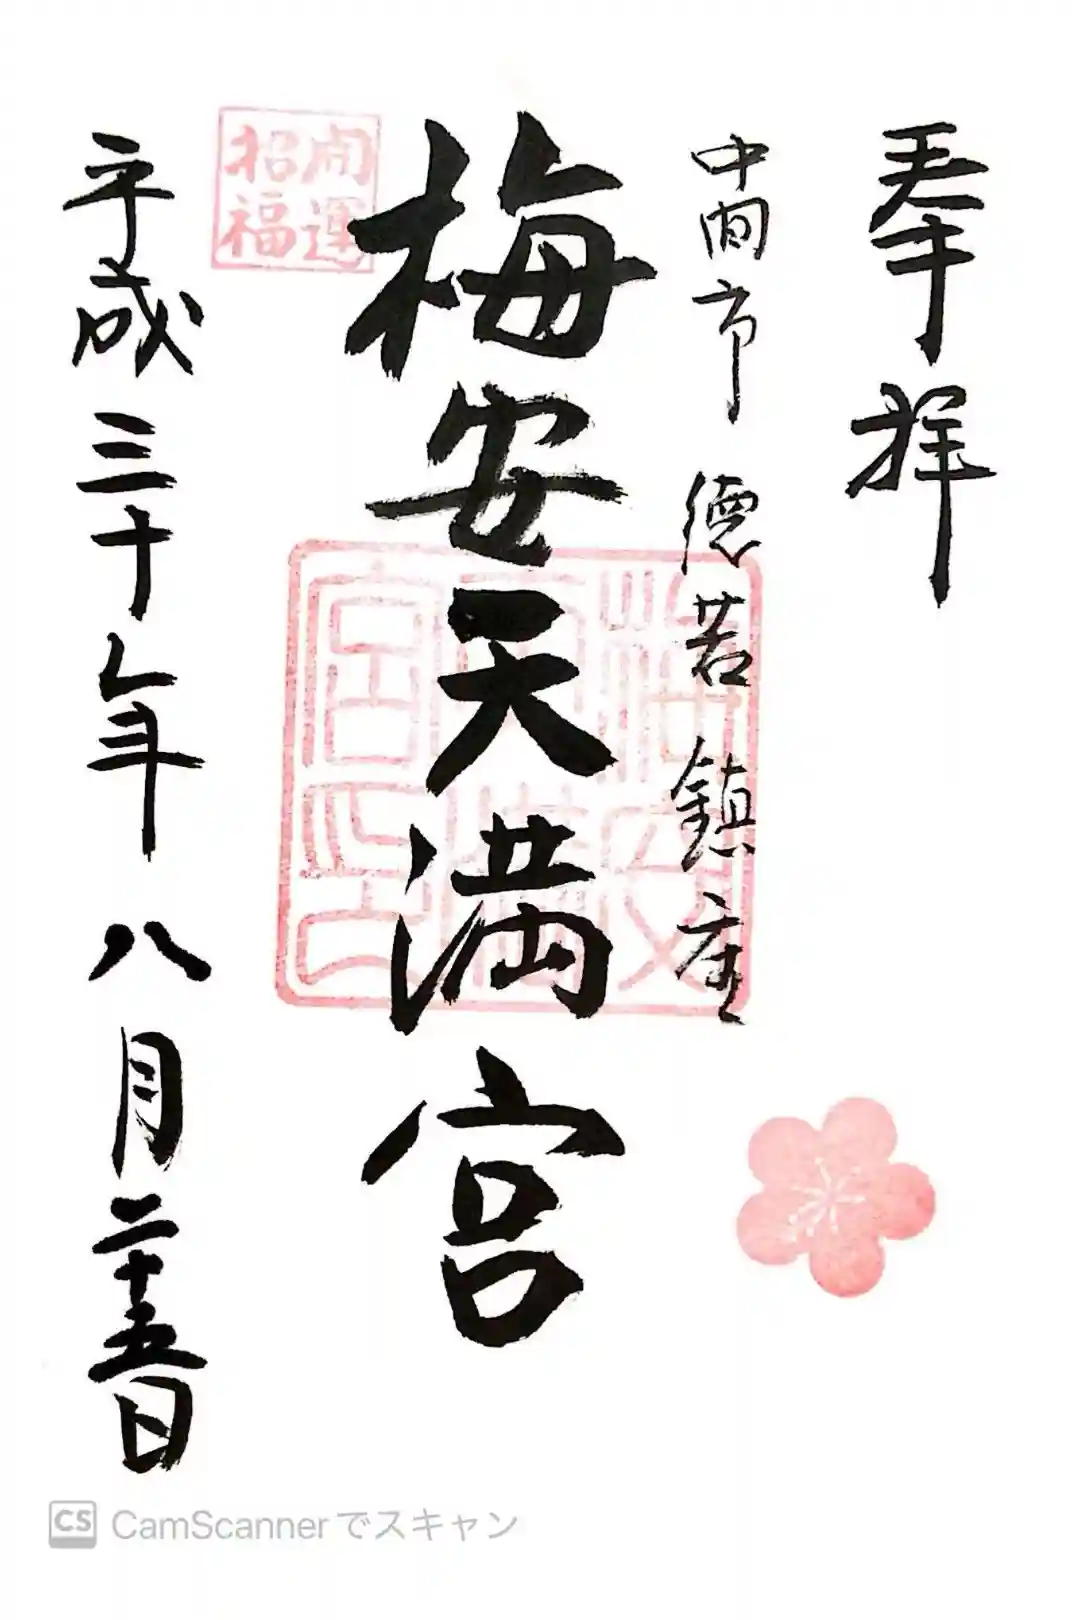 奉拝
中間市 徳若鎮座
梅安天満宮
開運
招福
梅安
天満
宮印
平成三十年八月二十五日
CS CamScannerでスキャン